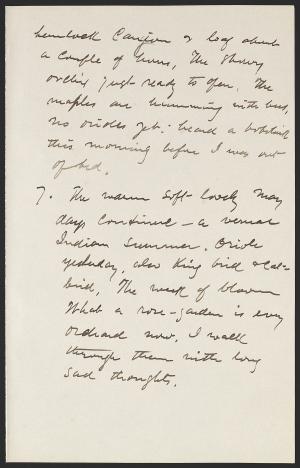 hemlock Canyon & loaf about
a couple of hours, The Showy
orchis just ready to open. The
maples are humming with bees,
no orioles yet; heard a bobolink
this morning before I was out
of bed.
7. The warm soft lovely May
days continue – a vernal
Indian summer. Oriole
yesterday, also King bird & Cat-
bird, The week of bloom
What a rose-garden is every
orchard now. I walk
through them with long
sad thoughts.